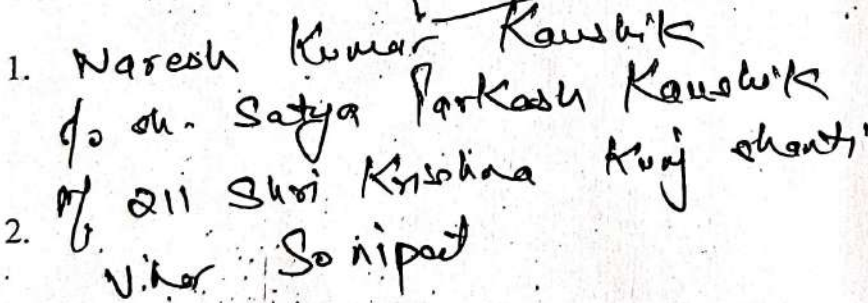 1. Naresh Kumar Kaushik
s/o sh. Satya Parkash Kaushik
r/o 211 Shri Krishna Kunj shanti
2. Vihar Sonipat